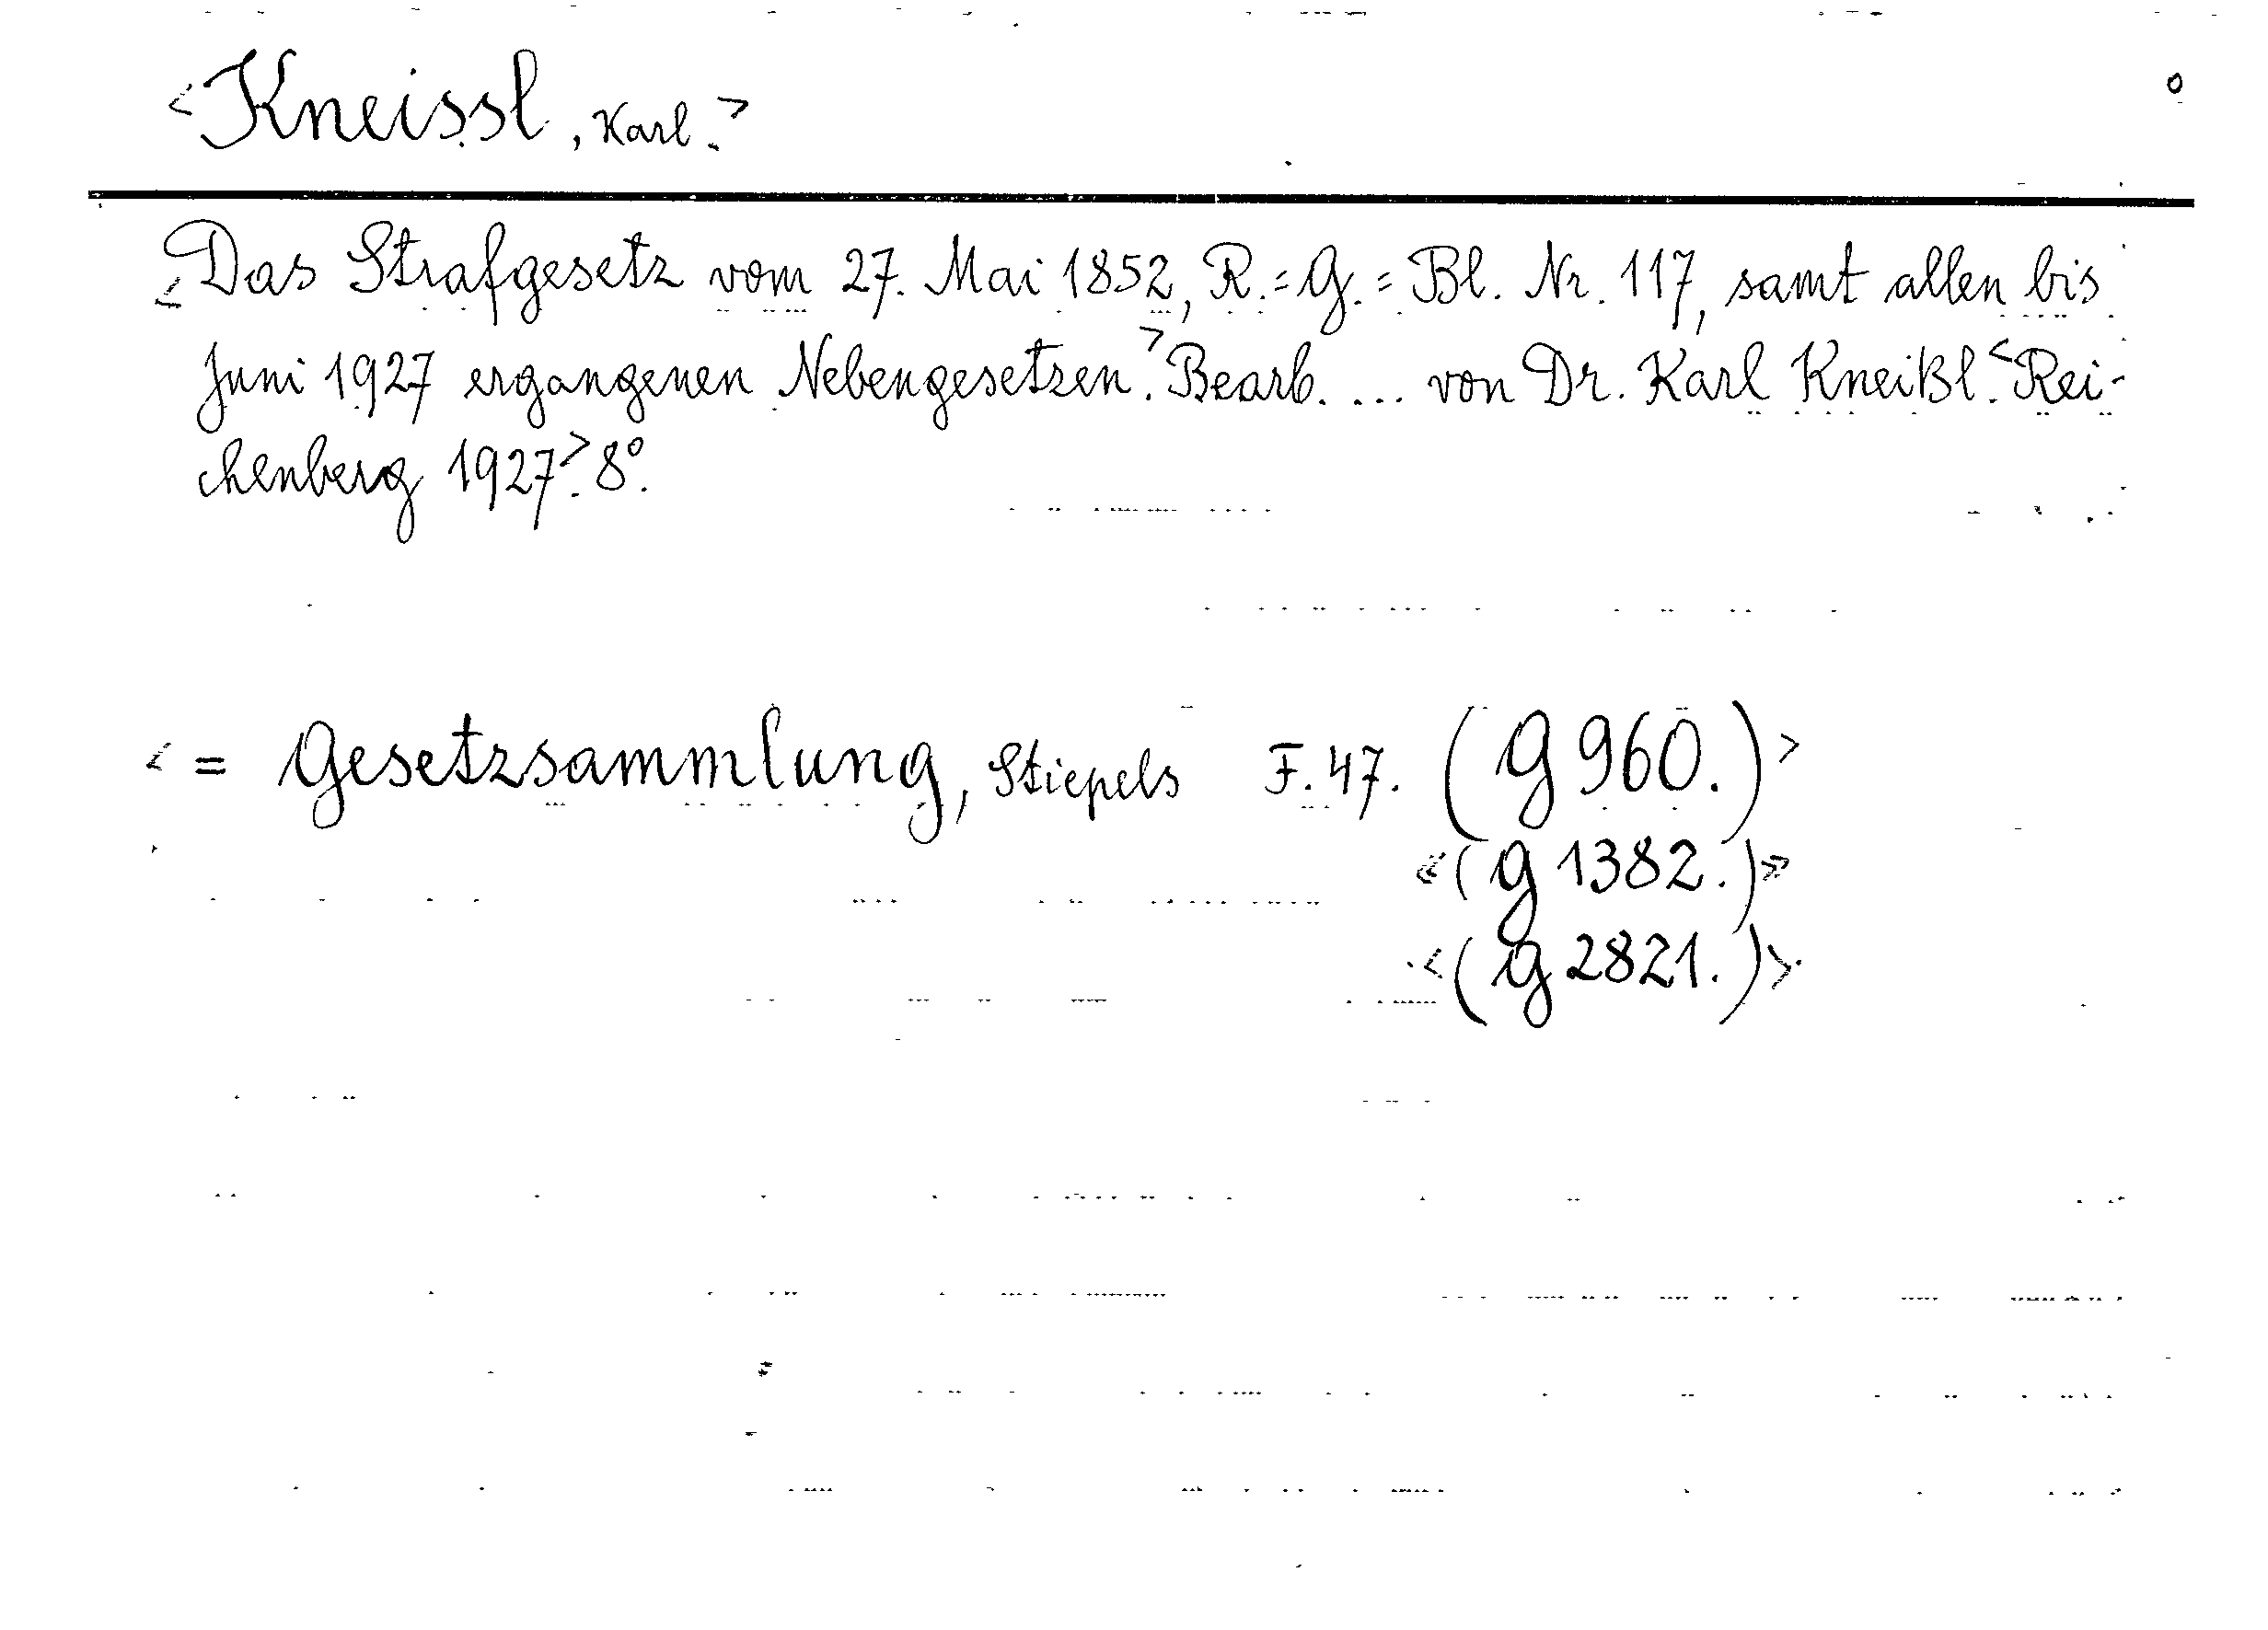 <Kneissl, Karl.> o
<Das Strafgesetz vom 27. Mai 1852, R.=G.=Bl. Nr. 117, samt allen bis
Juni 1927 ergangenen Nebengesetzen.> Bearb. ... von Dr. Karl Kneißl. <Rei-
chenberg 1927.> 8°.
< = Gesetzsammlung, Stiepels F. 47. (G 960.)>
«(G 1382.)»
<(G 2821.)>